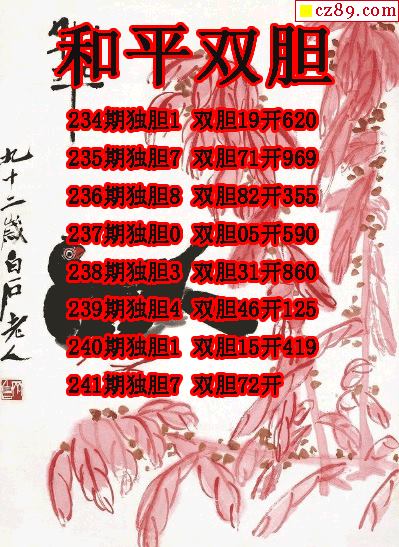 cz89.com
和平双胆
234期独胆1 双胆19开620
235期独胆7 双胆71开969
236期独胆8 双胆82开355
237期独胆0 双胆05开590
238期独胆3 双胆31开860
239期独胆4 双胆46开125
240期独胆1 双胆15开419
241期独胆7 双胆72开
九十二岁白石老人